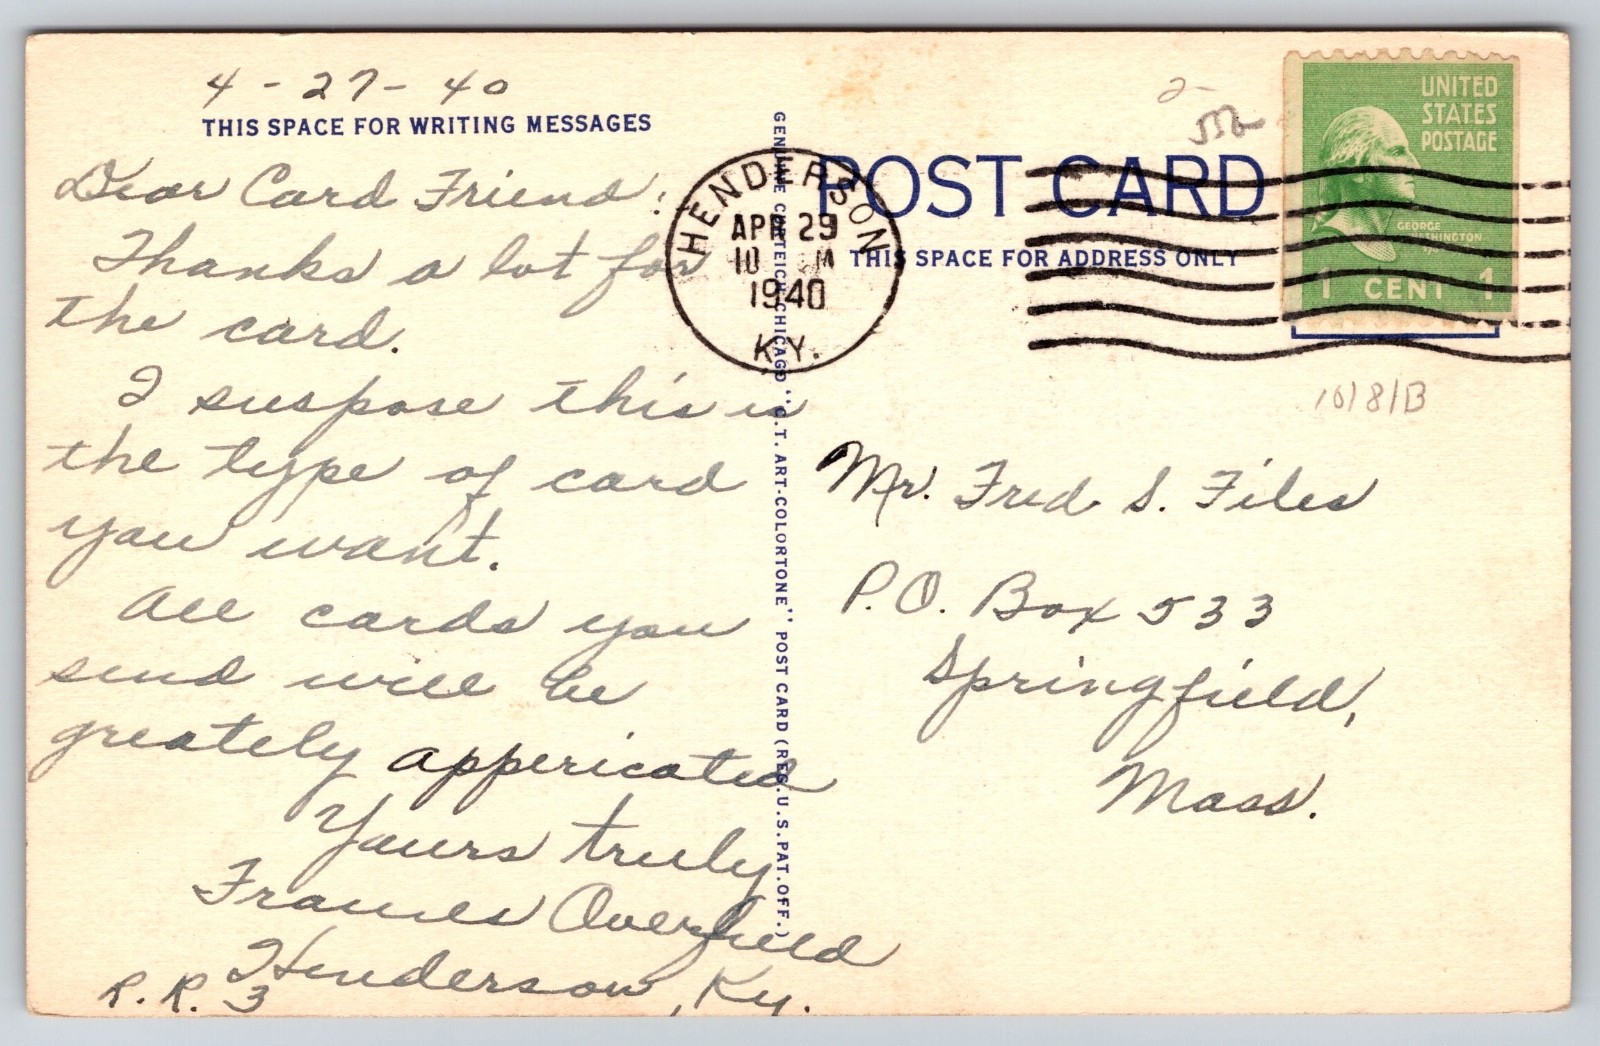 4-27-40
THIS SPACE FOR WRITING MESSAGES
Dear Card Friend:
Thanks a lot for
the card.
I suspose this is
the type of card
you want.
All cards you
send will be
greately appericated
Yours truly
Frances Overfield
Henderson, Ky.
R.R. 3
GENUINE CURTEICH-CHICAGO "C.T. ART-COLORTONE" POST CARD (REG. U.S. PAT. OFF.)
HENDERSON
APR 29
10 M
1940
KY.
POST CARD
THIS SPACE FOR ADDRESS ONLY
2-
UNITED
STATES
POSTAGE
GEORGE
WASHINGTON
1 CENT 1
10/8/B
Mr. Fred S. Files
P.O. Box 533
Springfield,
Mass.